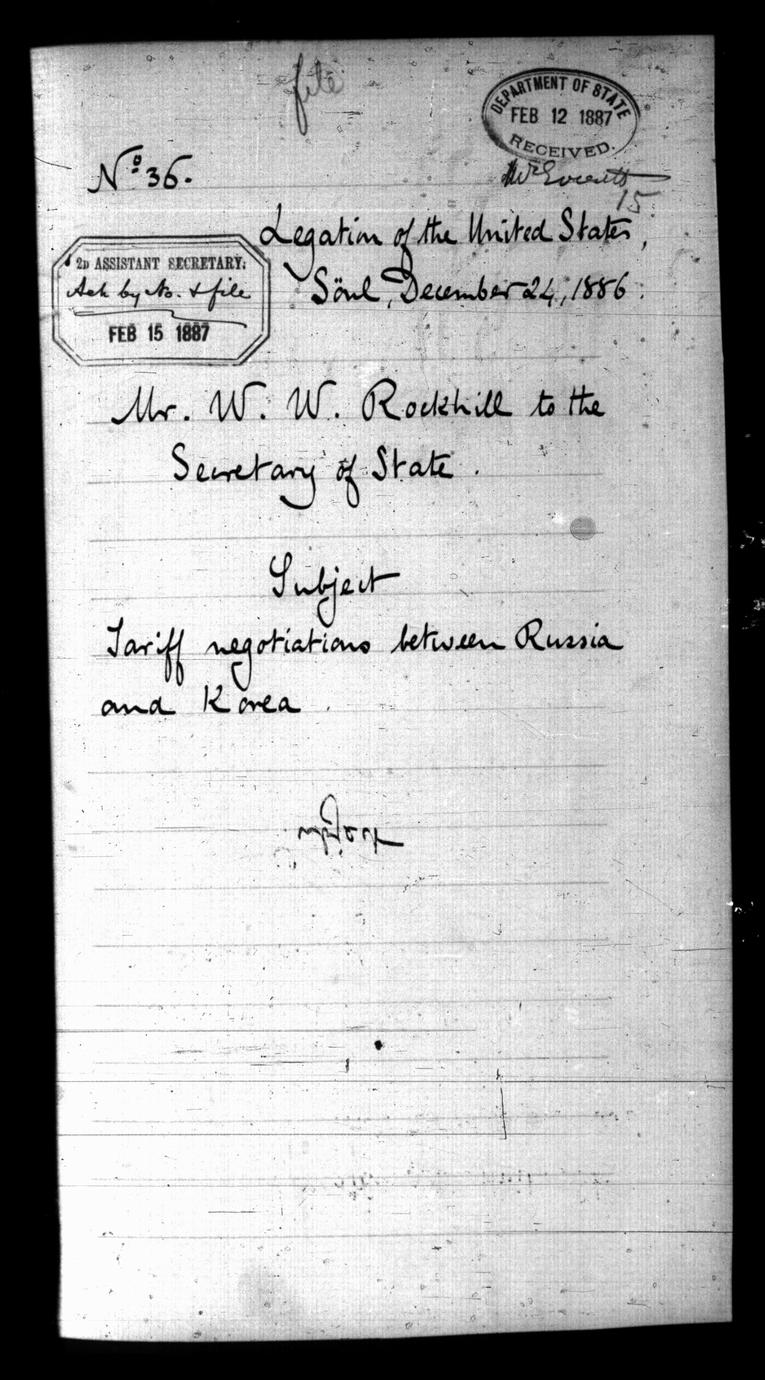 file
DEPARTMENT OF STATE
FEB 12 1887
RECEIVED.
Nº 36.
15
Legation of the United States,
Söul, December 24, 1886.
2D ASSISTANT SECRETARY.
Ack by No. & file
FEB 15 1887
Mr. W. W. Rockhill to the
Secretary of State.
Subject
Tariff negotiations between Russia
and Korea.